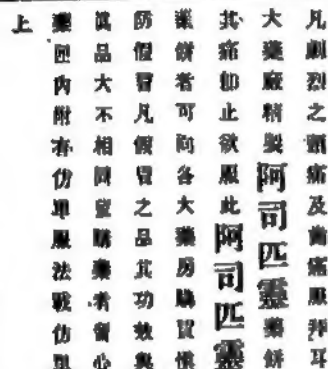 凡劇烈之頭痛及齒痛服拜耳
大藥廠精製阿司匹靈藥餅
其痛卽止欲服此阿司匹靈
藥餅者可向各大藥房購買惟
防假冒凡假冒之品其功效與
眞品大不相同望購藥者留心
藥匣內附有仿單服法載仿單
上